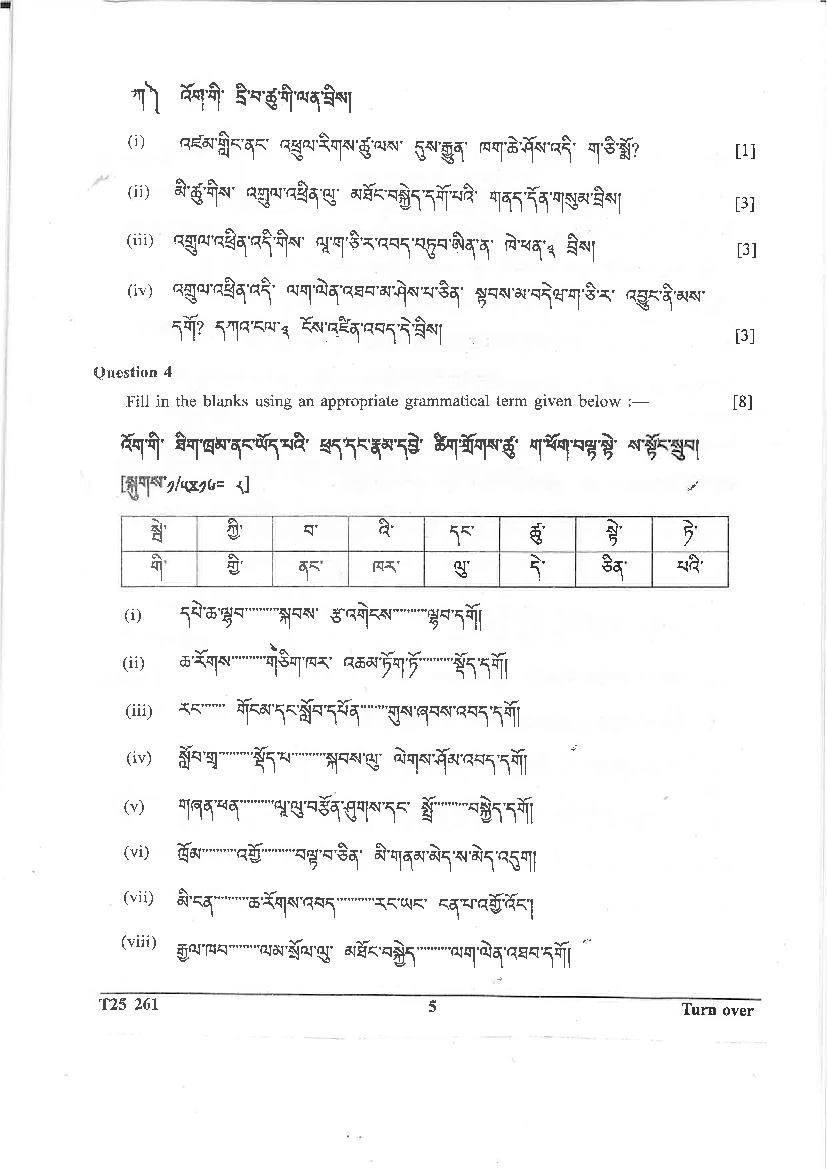 ཀ༽ འོག་གི་ དྲི་བ་ཚུ་གི་ལན་བྲིས།
(i) འཛམ་གླིང་ནང་ འཕྲུལ་རིགས་ཚུ་ལས་ དུས་རྒྱུན་ ཁག་ཆེ་ཤོས་འདི་ ག་ཅི་སྨོ? [1]
(ii) མི་ཚུ་གིས་ འགྲུལ་འཕྲིན་ལུ་ མཐོང་བསྐྱེད་དགོ་པའི་ གནད་དོན་གསུམ་བྲིས། [3]
(iii) འགྲུལ་འཕྲིན་འདི་གིས་ ལཱ་ག་ཅི་ར་འབད་བཏུབ་ཨིན་ན་ ཁེ་ཕན་༣ བྲིས། [3]
(iv) འགྲུལ་འཕྲིན་འདི་ ལག་ལེན་འཐབ་མ་ཤེས་པ་ཅིན་ སྟབས་མ་བདེཝ་ག་ཅི་ར་ འབྱུང་ནི་མས་
དགོ? དཀའ་ངལ་༣ ངོས་འཛིན་འབད་དེ་བྲིས། [3]
Question 4
Fill in the blanks using an appropriate grammatical term given below :— [8]
འོག་གི་ ཐིག་ཁྲམ་ནང་ཡོད་པའི་ ཕྲད་དང་རྣམ་དབྱེ་ ཚིག་གྲོགས་ཚུ་ ག་ཕོག་བལྟ་སྟེ་ ས་སྟོང་སྲུབ།
[སྐུགས་༡/༢x༡༦= ༨]
སྦེ་ ཀྱི་ བ་ འི་ དང་ ཚུ་ སྟེ་ ཏེ་
གི་ གྱི་ ནང་ ཁར་ ལུ་ དེ་ ཅིན་ པའི་
(i) དཔེ་ཆ་ལྷབ.........སྐབས་ རྩ་འགེངས.........ལྷབ་དགོ།
(ii) ཆ་རོགས.........གཅིག་ཁར་ འཆམ་ཏོག་ཏོ.........སྡོད་དགོ།
(iii) རང...... གོངམ་དང་སློབ་དཔོན.......གུས་ཞབས་འབད་དགོ།
(iv) སློབ་གྲྭ.........སྡོད་པ.........སྐབས་ལུ་ ལེགས་ཤོམ་འབད་དགོ།
(v) གཞན་ཕན.........ལཱ་ལུ་བརྩོན་ཤུགས་དང་ སྤྲོ.........བསྐྱེད་དགོ།
(vi) ཁྲོམ.........འགྱོ.........བལྟ་བ་ཅིན་ མི་གནམ་མེད་ས་མེད་འདུག།
(vii) མི་ངན.........ཆ་རོགས་འབད.........རང་ཡང་ ངན་པ་འགྱོ་འོང་།
(viii) རྒྱལ་ཁབ.........ལམ་སྲོལ་ལུ་ མཐོང་བསྐྱེད.........ལག་ལེན་འཐབ་དགོ།
T25 261 5 Turn over